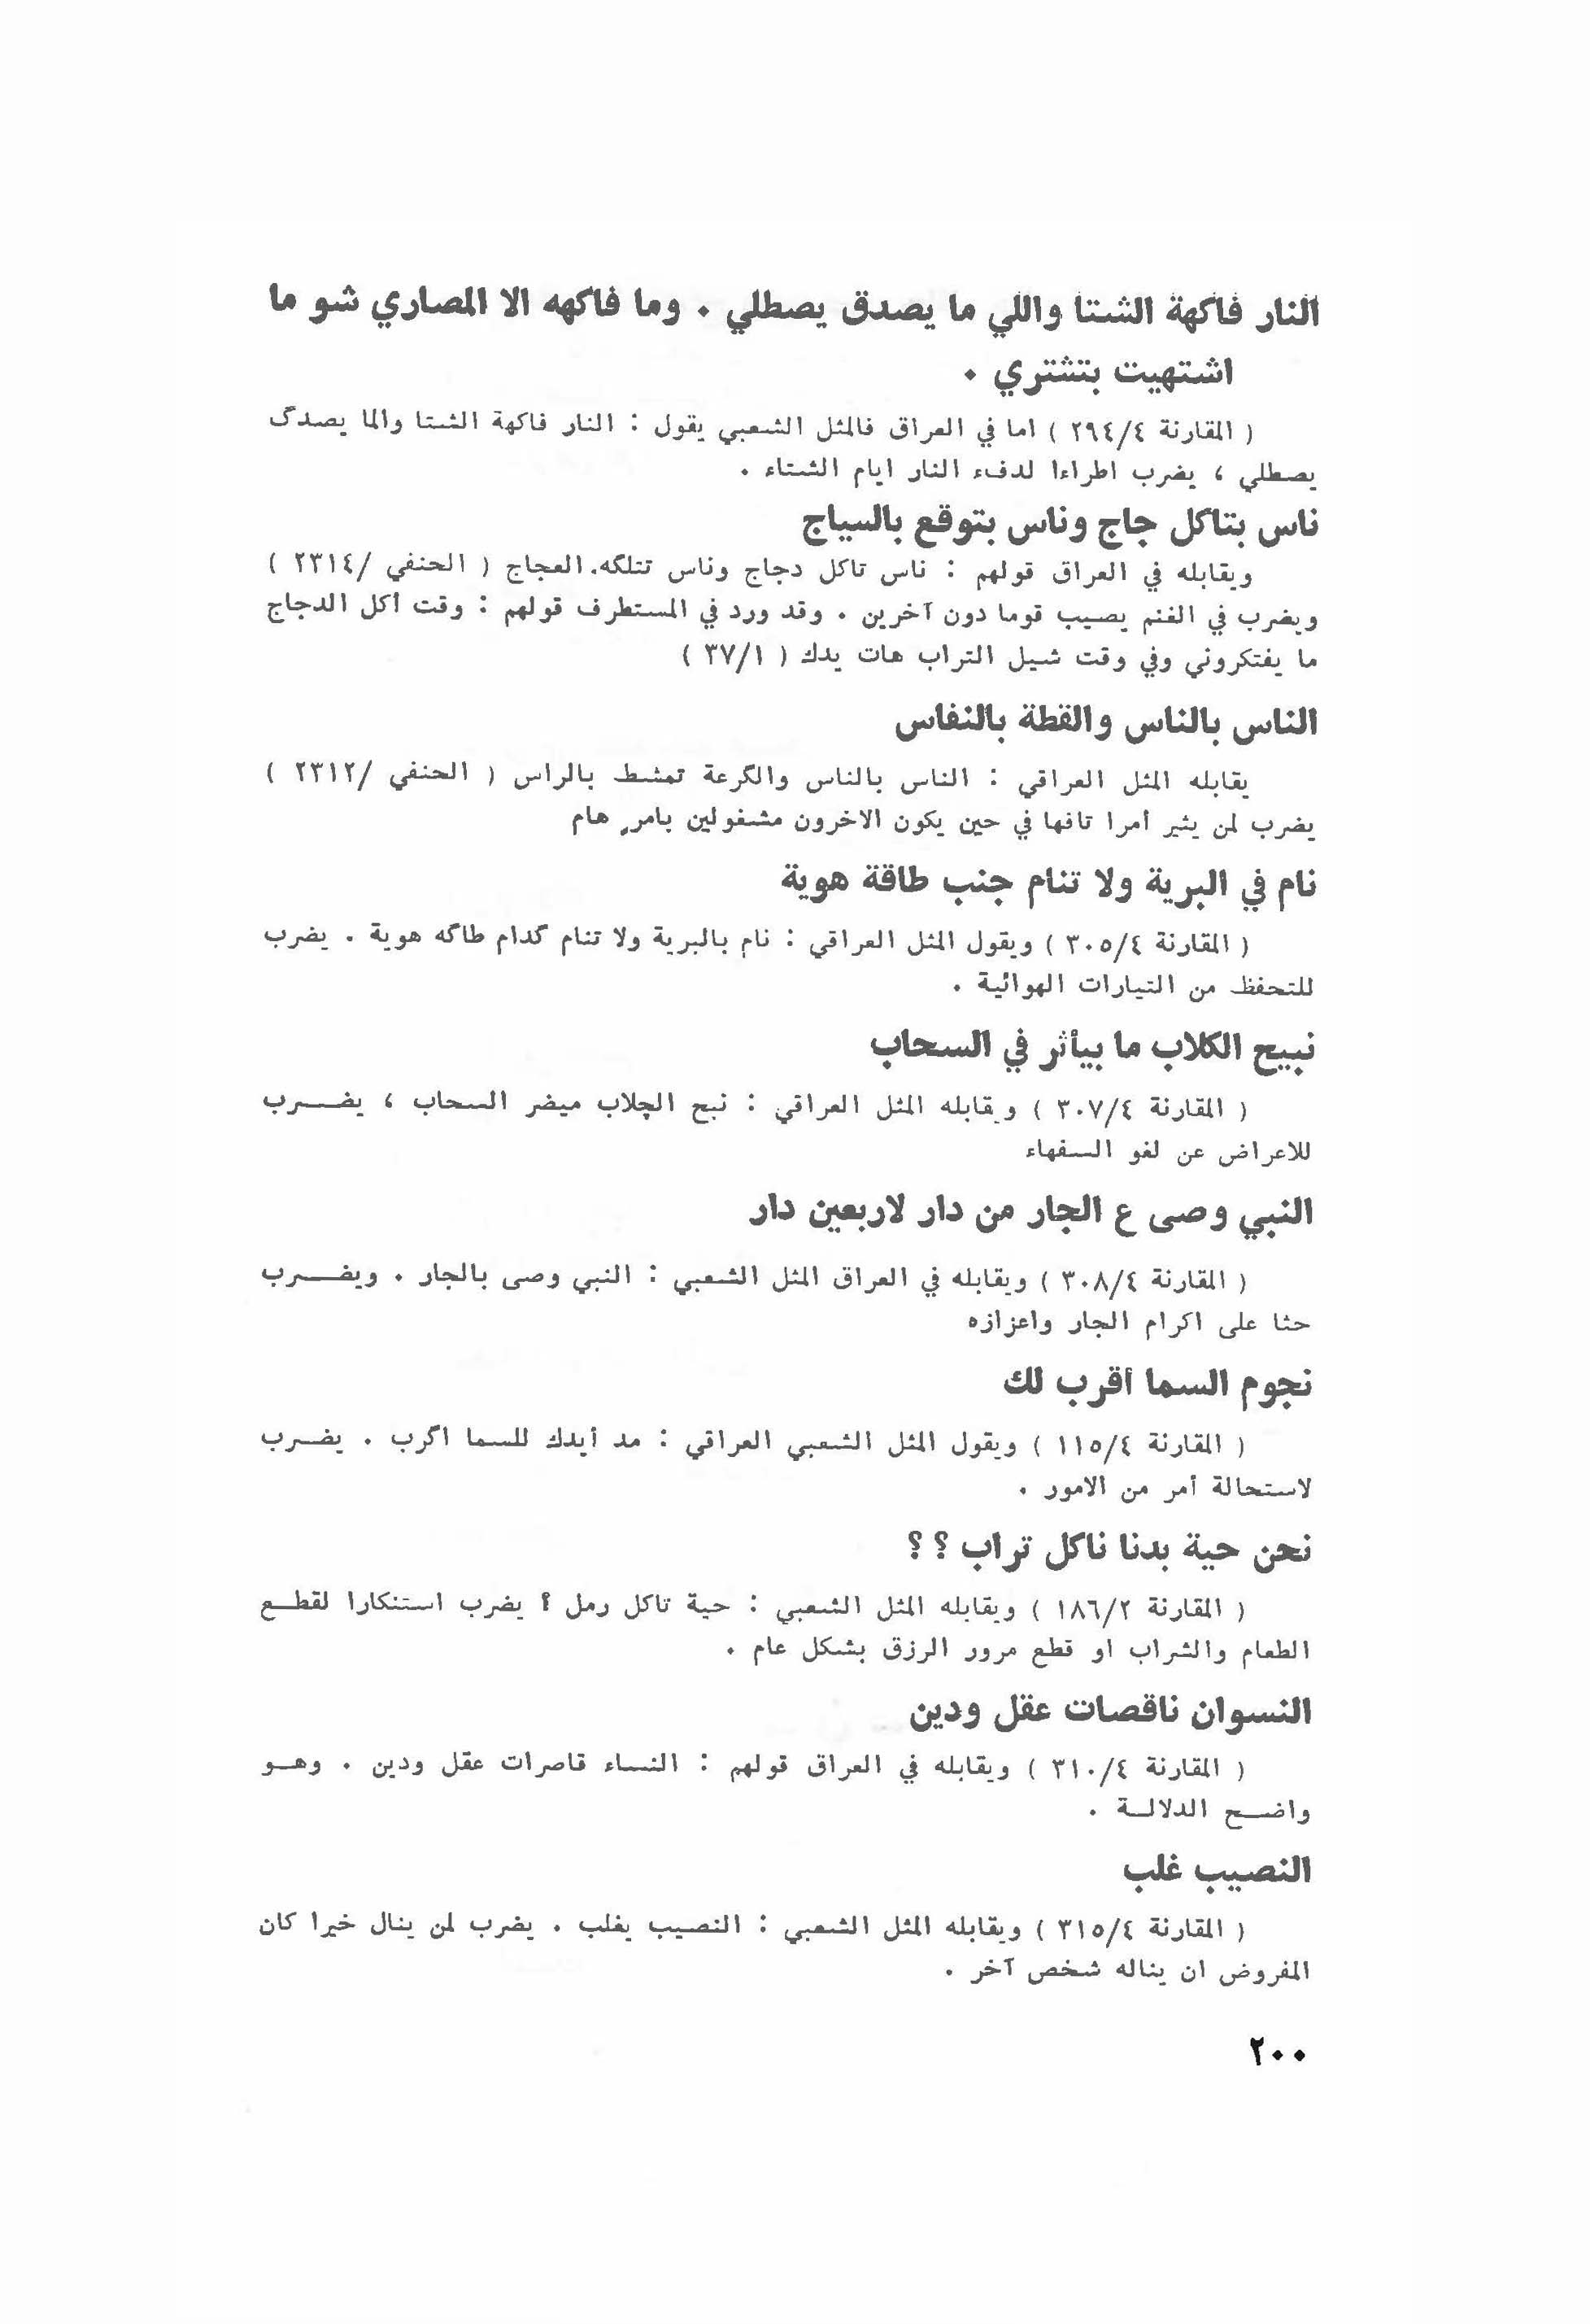 النار فاكهة الشتا واللي ما يصدق يصطلي . وما فاكهه الا المصاري شو ما
اشتهيت بتشتري .
( المقارنة ٢٩٤/٤ ) اما في العراق فالمثل الشعبي يقول : النار فاكهة الشتا والما يصدگ
يصطلي ، يضرب اطراءا لدفء النار ايام الشتاء .
ناس بتاكل جاج وناس بتوقع بالسياج
ويقابله في العراق قولهم : ناس تاكل دجاج وناس تتلگه.العجاج ( الحنفي /٢٣١٤ )
ويضرب في الغنم يصيب قوما دون آخرين . وقد ورد في المستطرف قولهم : وقت أكل الدجاج
ما يفتكروني وفي وقت شيل التراب هات يدك ( ٣٧/١ )
الناس بالناس والقطة بالنفاس
يقابله المثل العراقي : الناس بالناس والگرعة تمشط بالراس ( الحنفي /٢٣١٢ )
يضرب لمن يثير أمرا تافها في حين يكون الاخرون مشغولين بامر هام
نام في البرية ولا تنام جنب طاقة هوية
( المقارنة ٣٠٥/٤ ) ويقول المثل العراقي : نام بالبرية ولا تنام گدام طاگه هوية . يضرب
للتحفظ من التيارات الهوائية .
نبيح الكلاب ما بيأثر في السحاب
( المقارنة ٣٠٧/٤ ) ويقابله المثل العراقي : نبح الچلاب ميضر السحاب ، يضــرب
للاعراض عن لغو السفهاء
النبي وصى ع الجار من دار لاربعين دار
( المقارنة ٣٠٨/٤ ) ويقابله في العراق المثل الشعبي : النبي وصى بالجار . ويضــرب
حثا على اكرام الجار واعزازه
نجوم السما أقرب لك
( المقارنة ١١٥/٤ ) ويقول المثل الشعبي العراقي : مد أيدك للسما اگرب . يضــرب
لاستحالة أمر من الامور .
نحن حية بدنا ناكل تراب ؟ ؟
( المقارنة ١٨٦/٢ ) ويقابله المثل الشعبي : حية تاكل رمل ؟ يضرب استنكارا لقطــع
الطعام والشراب او قطع مرور الرزق بشكل عام .
النسوان ناقصات عقل ودين
( المقارنة ٣١٠/٤ ) ويقابله في العراق قولهم : النساء قاصرات عقل ودين . وهــو
واضــح الدلالــة .
النصيب غلب
( المقارنة ٣١٥/٤ ) ويقابله المثل الشعبي : النصيب يغلب . يضرب لمن ينال خيرا كان
المفروض ان يناله شخص آخر .
٢٠٠